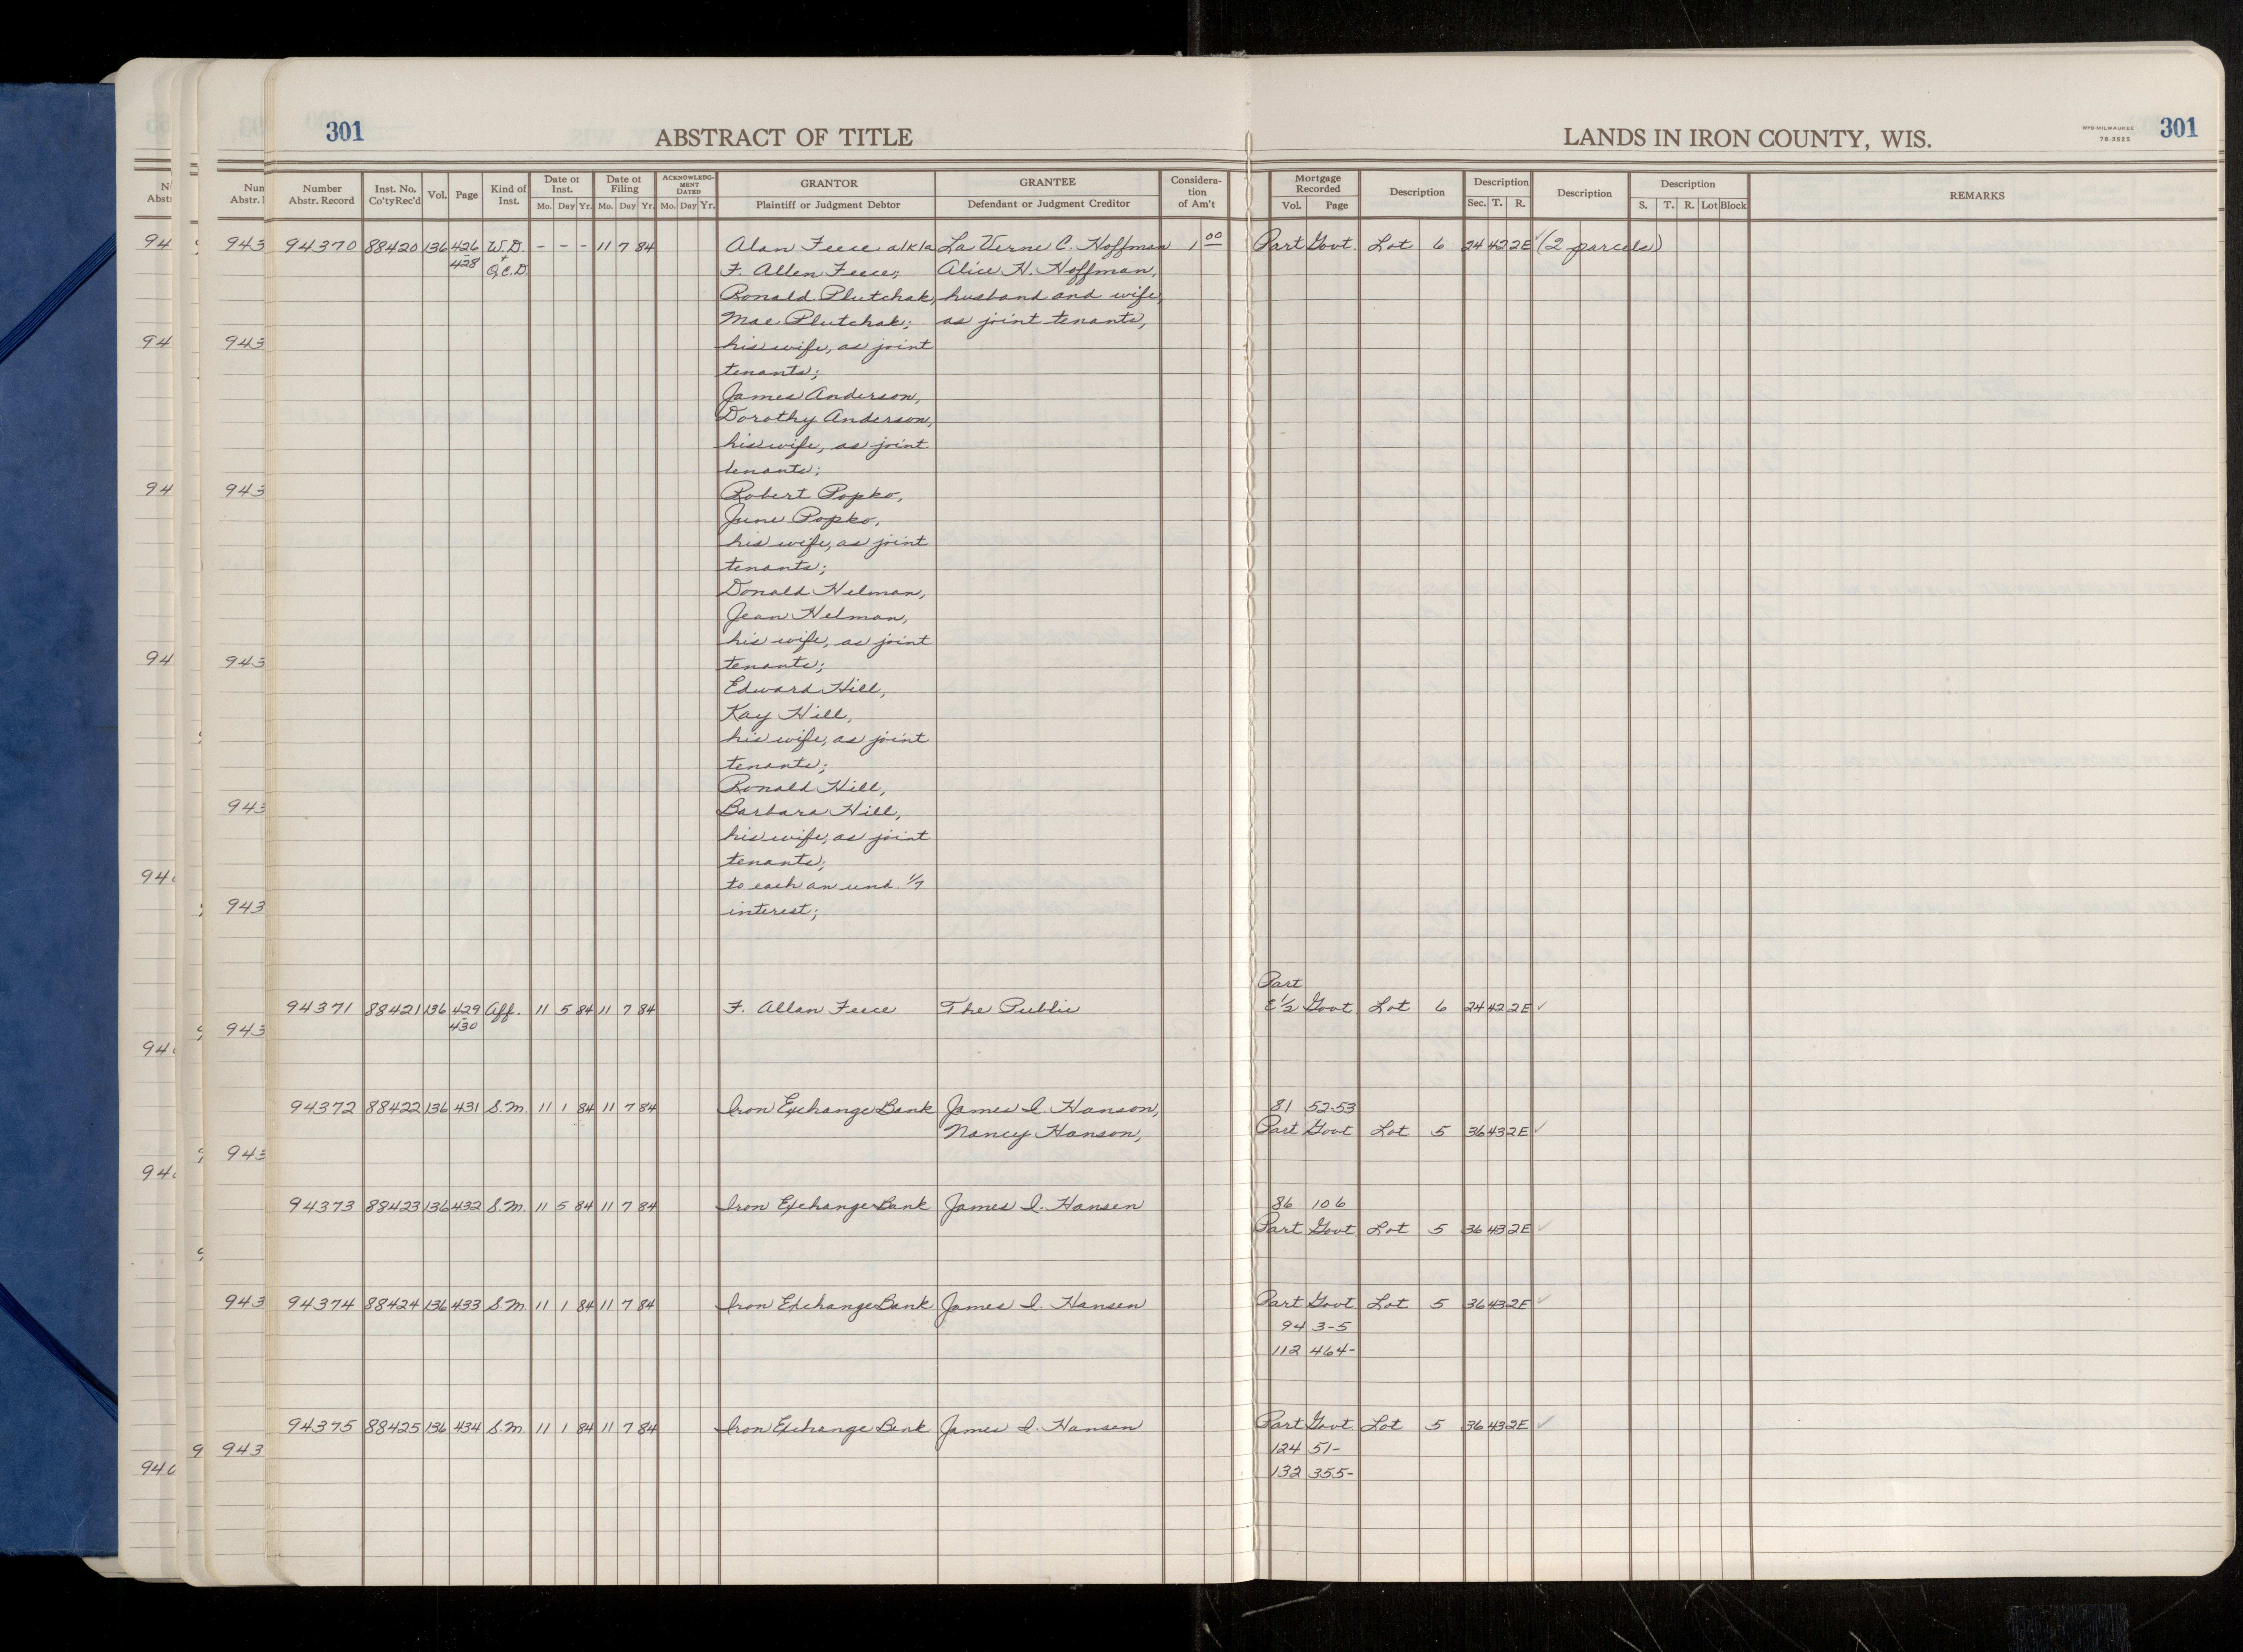 301 ABSTRACT OF TITLE LANDS IN IRON COUNTY, WIS. WPB-MILWAUKEE 78-3525 301
Number Abstr. Record Inst. No. Co'ty Rec'd Vol. Page Kind of Inst. Date of Inst. Mo. Day Yr. Date of Filing Mo. Day Yr. ACKNOWLEDGMENT DATED Mo. Day Yr. GRANTOR Plaintiff or Judgment Debtor GRANTEE Defendant or Judgment Creditor Consideration of Am't Mortgage Recorded Vol. Page Description Description Sec. T. R. Description Description S. T. R. Lot Block REMARKS
94370 88420 136 426 W.D. - - - 11 7 84 Alan Feece a/k/a La Verne C. Hoffman 1 00 Part Govt. Lot 6 24 42 2E (2 parcels)
-428 + Q.C.D. F. Allen Feece; Alice H. Hoffman,
Ronald Plutchak, husband and wife,
Mae Plutchak; as joint tenants,
his wife, as joint
tenants;
James Anderson,
Dorothy Anderson,
his wife, as joint
tenants;
Robert Popko,
June Popko,
his wife, as joint
tenants;
Donald Helman,
Jean Helman,
his wife, as joint
tenants;
Edward Hill,
Kay Hill,
his wife, as joint
tenants;
Ronald Hill,
Barbara Hill,
his wife, as joint
tenants;
to each an und. 1/7
interest;
Part
94371 88421 136 429 Aff. 11 5 84 11 7 84 F. Allan Feece The Public E 1/2 Govt Lot 6 24 42 2E ✓
-430
94372 88422 136 431 S.M. 11 1 84 11 7 84 Iron Exchange Bank James I. Hanson, 81 52-53
Nancy Hanson, Part Govt Lot 5 36 43 2E ✓
94373 88423 136 432 S.M. 11 5 84 11 7 84 Iron Exchange Bank James I. Hansen 86 106
Part Govt Lot 5 36 43 2E ✓
94374 88424 136 433 S.M. 11 1 84 11 7 84 Iron Exchange Bank James I. Hansen Part Govt Lot 5 36 43 2E ✓
94 3-5
112 464-
94375 88425 136 434 S.M. 11 1 84 11 7 84 Iron Exchange Bank James I. Hansen Part Govt Lot 5 36 43 2E ✓
124 51-
132 355-